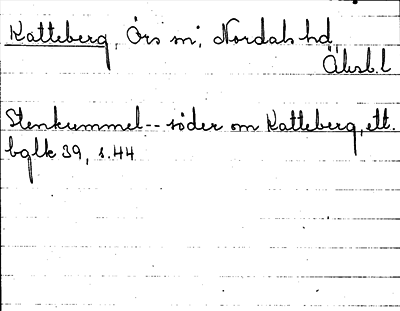 Katteberg, Örs sn, Nordals hd,
Älvsb. l
Stenkummel -- söder om Katteberg, ett.
bglk 39, s. 44